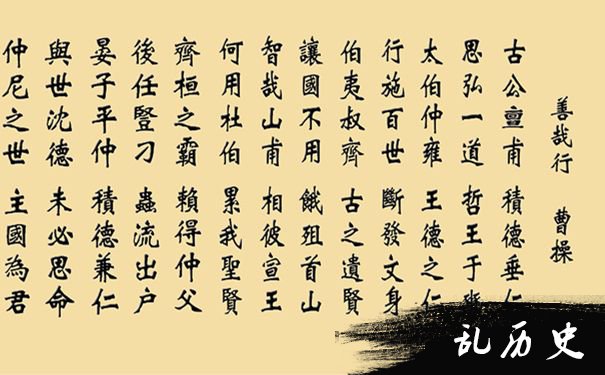 善哉行 曹操
古公亶甫 積德垂仁
思弘一道 哲王于豳
太伯仲雍 王德之仁
行施百世 斷發文身
伯夷叔齊 古之遺賢
讓國不用 餓殂首山
智哉山甫 相彼宣王
何用杜伯 累我聖賢
齊桓之霸 賴得仲父
後任豎刁 蟲流出户
晏子平仲 積德兼仁
與世沈德 未必思命
仲尼之世 主國為君
乱历史